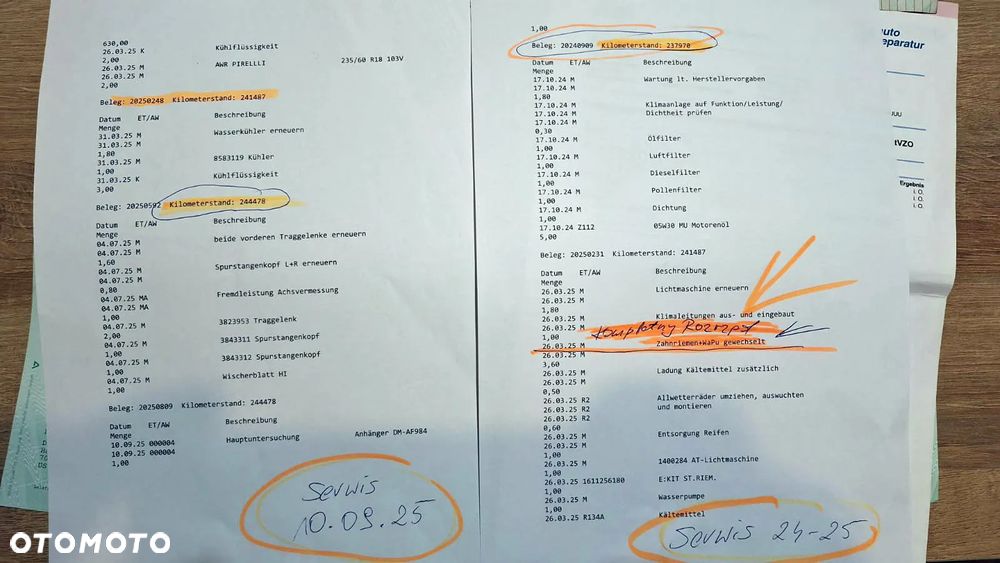 630,00
26.03.25 K Kühlflüssigkeit
2,00
26.03.25 M AWR PIRELLLI 235/60 R18 103V
26.03.25 M
2,00
Beleg: 20250248 Kilometerstand: 241487
Datum ET/AW Beschreibung
Menge
31.03.25 M Wasserkühler erneuern
31.03.25 M
1,80
31.03.25 M 8583119 Kühler
1,00
31.03.25 K Kühlflüssigkeit
3,00
Beleg: 20250592 Kilometerstand: 244478
Datum ET/AW Beschreibung
Menge
04.07.25 M beide vorderen Traggelenke erneuern
04.07.25 M
1,60
04.07.25 M Spurstangenkopf L+R erneuern
04.07.25 M
0,80
04.07.25 MA Fremdleistung Achsvermessung
04.07.25 MA
1,00
04.07.25 M 3823953 Traggelenk
2,00
04.07.25 M 3843311 Spurstangenkopf
1,00
04.07.25 M 3843312 Spurstangenkopf
1,00
04.07.25 M Wischerblatt HI
1,00
Beleg: 20250809 Kilometerstand: 244478
Datum ET/AW Beschreibung
Menge
10.09.25 000004 Hauptuntersuchung Anhänger DM-AF984
10.09.25 000004
1,00
Serwis
10.09.25
1,00
Beleg: 20240909 Kilometerstand: 237970
Datum ET/AW Beschreibung
Menge
17.10.24 M Wartung lt. Herstellervorgaben
17.10.24 M
1,80
17.10.24 M Klimaanlage auf Funktion/Leistung/
17.10.24 M Dichtheit prüfen
17.10.24 M
0,30
17.10.24 M Ölfilter
1,00
17.10.24 M Luftfilter
1,00
17.10.24 M Dieselfilter
1,00
17.10.24 M Pollenfilter
1,00
17.10.24 M Dichtung
1,00
17.10.24 Z112 05W30 MU Motorenöl
5,00
Beleg: 20250231 Kilometerstand: 241487
Datum ET/AW Beschreibung
Menge
26.03.25 M Lichtmaschine erneuern
26.03.25 M
1,80
26.03.25 M Klimaleitungen aus- und eingebaut
26.03.25 M
1,00 Kompletny Rozrząd
26.03.25 M Zahnriemen+WaPu gewechselt
26.03.25 M
3,60
26.03.25 M Ladung Kältemittel zusätzlich
26.03.25 M
0,50
26.03.25 R2 Allwetterräder umziehen, auswuchten
26.03.25 R2 und montieren
26.03.25 R2
0,60
26.03.25 M Entsorgung Reifen
26.03.25 M
1,00
26.03.25 M 1400284 AT-Lichtmaschine
1,00
26.03.25 1611256180 E:KIT ST.RIEM.
1,00
26.03.25 M Wasserpumpe
1,00
26.03.25 R134A Kältemittel
Serwis 24-25
auto
reparatur
tVZO
Ergebnis
i. O.
i. O.
i. O.
OTOMOTO